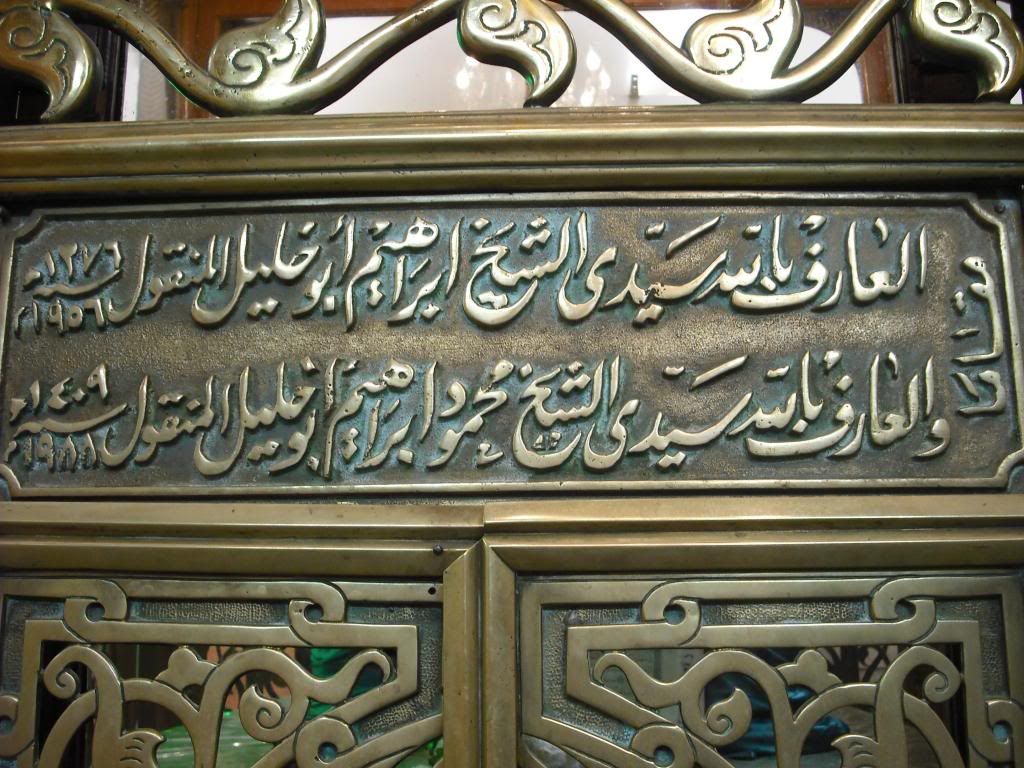 مقاما
العارف بالله سيدى الشيخ ابراهيم أبو خليل المنقول سنة ١٣٧٦ هـ ١٩٥٦ م
والعارف بالله سيدى الشيخ محمود ابراهيم أبو خليل المنقول سنة ١٤٠٩ هـ ١٩٨٨ م